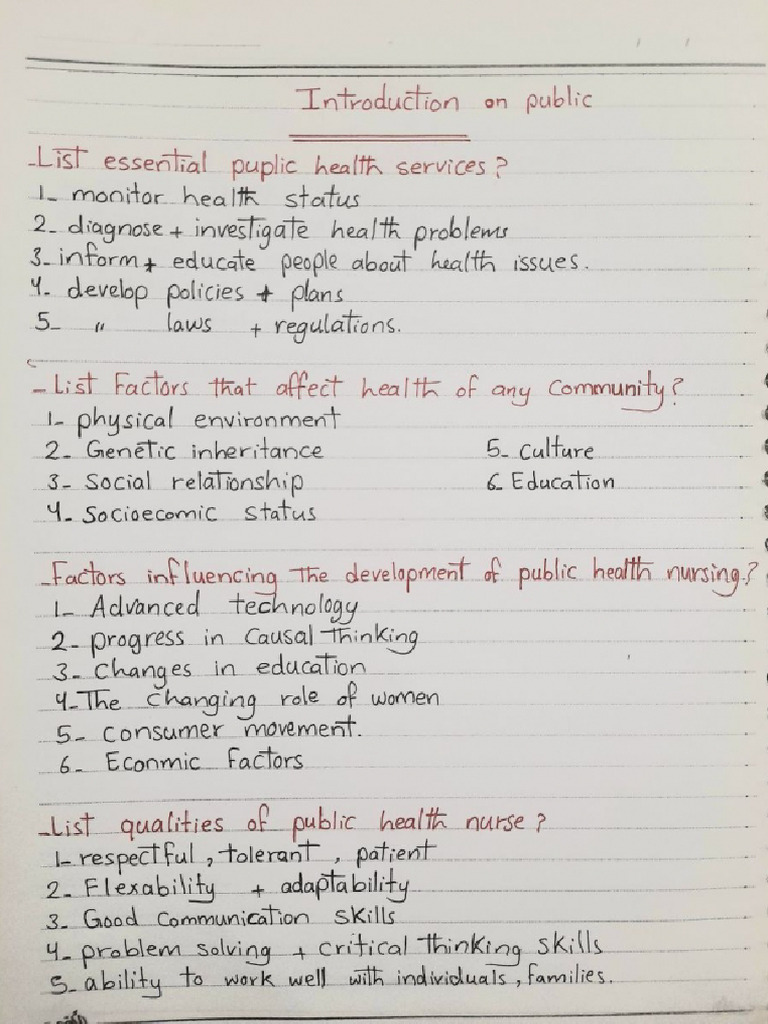 Introduction on public
-List essential puplic health services?
1- monitor health status
2- diagnose + investigate health problems
3- inform + educate people about health issues.
4- develop policies + plans
5- " laws + regulations.
- List Factors that affect health of any Community?
1- physical environment
2- Genetic inheritance
3- Social relationship
4- Socioecomic status
5- Culture
6- Education
-Factors influencing the development of public health nursing?
1- Advanced technology
2- progress in Causal thinking
3- Changes in education
4-The Changing role of women
5- Consumer movement.
6- Econmic Factors
-List qualities of public health nurse?
1- respectful, tolerant, patient
2- Flexability + adaptability
3- Good Communication skills
4- problem solving + critical thinking skills
5- ability to work well with individuals, families.